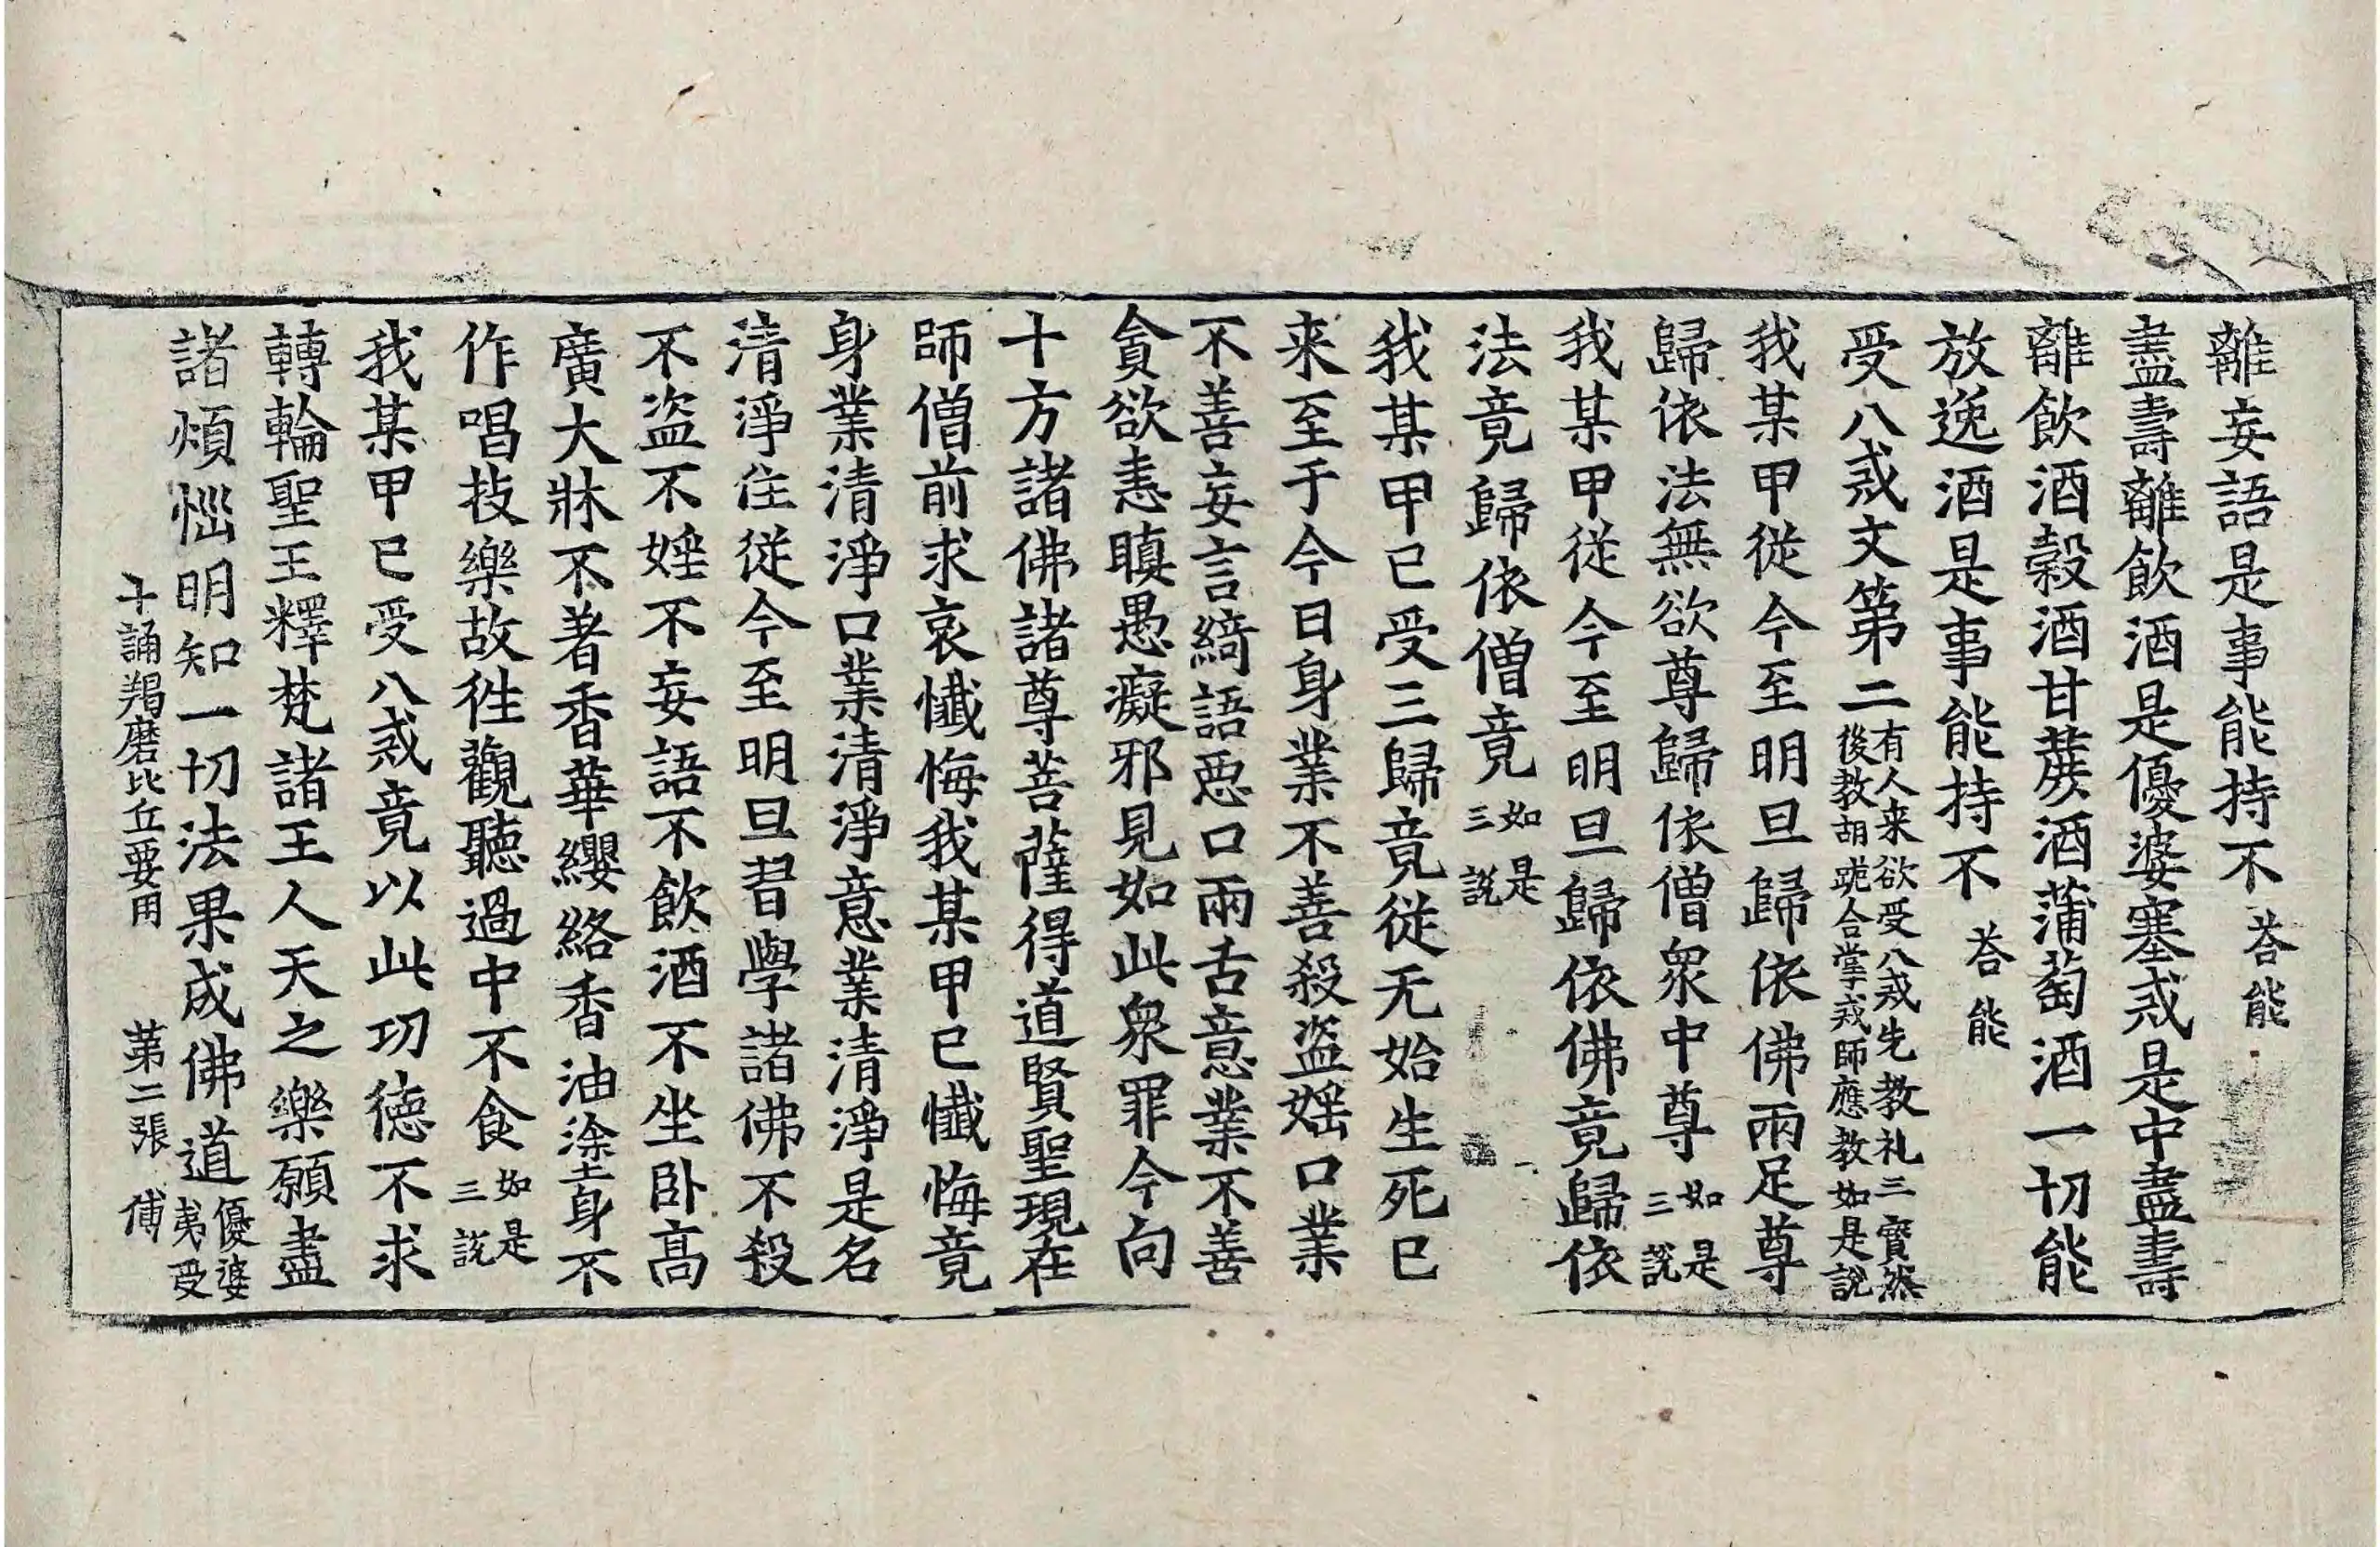 離妄語是事能持不荅能
盡壽離飲酒是優婆塞戒是中盡壽
離飲酒穀酒甘蔗酒蒲萄酒一切能
放逸酒是事能持不荅能
受八戒文第二有人来欲受八戒先教礼三寳然後教胡跪合掌戒師應教如是說
我某甲從今至明旦歸依佛兩足尊
歸依法無欲尊歸依僧衆中尊如是三說
我某甲從今至明旦歸依佛竟歸依
法竟歸依僧竟如是三說
我某甲已受三歸竟從无始生死已
来至于今日身業不善殺盗婬口業
不善妄言綺語惡口兩舌意業不善
貪欲恚瞋愚癡邪見如此衆罪今向
十方諸佛諸尊菩薩得道賢聖現在
師僧前求哀懺悔我某甲已懺悔竟
身業清淨口業清淨意業清淨是名
清淨住從今至明旦習學諸佛不殺
不盗不婬不妄語不飲酒不坐卧髙
廣大牀不著香華纓絡香油塗身不
作唱技樂故徃觀聽過中不食如是三說
我某甲已受八戒竟以此功德不求
轉輪聖王釋梵諸王人天之樂願盡
諸煩惱明知一切法果成佛道優婆夷受
十誦羯磨比丘要用 苐二張 傅